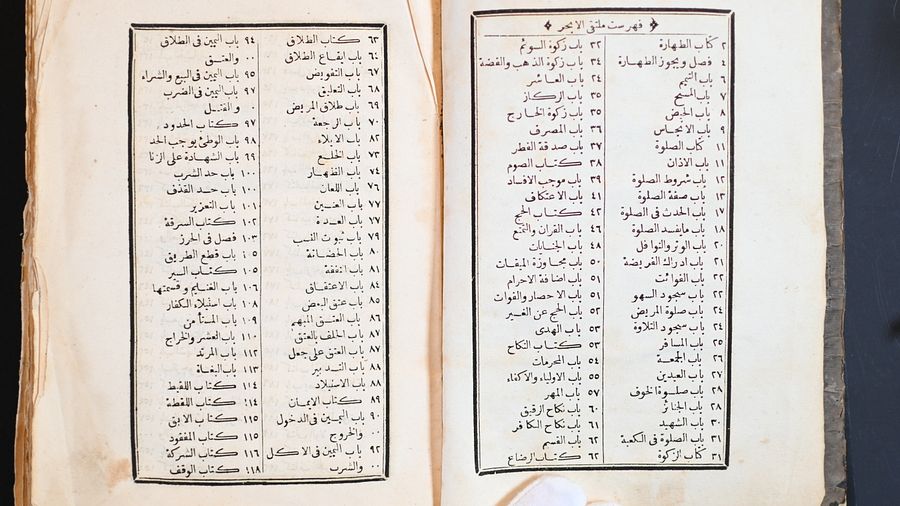 فهرست ملتقى الابحر
٢ كتاب الطهارة
٤ فصل ويجوز الطهارة
٦ باب التيمم
٧ باب المسح
٨ باب الحيض
٩ باب الانجاس
١١ كتاب الصلوة
١١ باب الاذان
١٢ باب شروط الصلوة
١٣ باب صفة الصلوة
١٧ باب الحدث فى الصلوة
١٨ باب مايفسد الصلوة
٢٠ باب الوتر والنوافل
٢١ باب ادراك الفريضة
٢٢ باب الفوائت
٢٢ باب سجود السهو
٢٤ باب صلوة المريض
٢٤ باب سجود التلاوة
٢٥ باب المسافر
٢٦ باب الجمعة
٢٧ باب العيدين
٢٩ باب صلوة الخوف
٢٨ باب الجنائز
٣٠ باب الشهيد
٣١ باب الصلوة فى الكعبة
٣١ كتاب الزكوة
٣٢ باب زكوة السوائم
٣٤ باب زكوة الذهب والفضة
٣٤ باب العاشر
٣٥ باب الركاز
٣٥ باب زكوة الخارج
٣٦ باب المصرف
٣٧ باب صدقة الفطر
٣٨ كتاب الصوم
٣٩ باب موجب الافساد
٤١ باب الاعتكاف
٤٢ كتاب الحج
٤٦ باب القران والتمتع
٤٨ باب الجنايات
٥٠ باب مجاوزة الميقات
٥١ باب اضافة الاحرام
٥١ باب الاحصار والفوات
٥٢ باب الحج عن الغير
٥٣ باب الهدى
٥٣ كتاب النكاح
٥٤ باب المحرمات
٥٥ باب الاولياء والاكفاء
٥٧ باب المهر
٦٠ باب نكاح الرقيق
٦١ باب نكاح الكافر
٦٢ باب القسم
٦٢ كتاب الرضاع
٦٣ كتاب الطلاق
٦٤ باب ايقاع الطلاق
٦٧ باب التفويض
٦٨ باب التعليق
٦٩ باب طلاق المريض
٧٠ باب الرجعة
٨٢ باب الايلاء
٧٣ باب الخلع
٧٤ باب الظهار
٧٦ باب اللعان
٧٧ باب العنين
٧٧ باب العدة
٧٩ باب ثبوت النسب
٨٠ باب الحضانة
٨١ باب النفقة
٨٤ باب الاعتقاق
٨٥ باب عتق البعض
٨٦ باب العتق المبهم
٨٧ باب الحلف بالعتق
٨٧ باب العتق على جعل
٨٨ باب التدبير
٨٨ باب الاستيلاد
٨٩ كتاب الايمان
٩٠ باب اليمين فى الدخول
٠٠ والخروج
٩٢ باب اليمين فى الاكل
٠٠ والشرب
٩٤ باب اليمين فى الطلاق
٠٠ والعتق
٩٥ باب اليمين فى البيع والشراء
٩٧ باب اليمين فى الضرب
٠ والقتل
٩٧ كتاب الحدود
٩٨ باب الوطئ يوجب الحد
٦٩ باب الشهادة على الزنا
١٠٠ باب حد الشرب
١٠٠ باب حد القذف
١٠١ باب التعزير
١٠٢ كتاب السرقة
١٠٣ فصل فى الحرز
١٠٥ باب قطع الطريق
١٠٥ كتاب السير
١٠٦ باب الغنايم وقسمتها
١٠٨ باب استيلاء الكفار
١٠٩ باب المستأمن
١١٠ باب العشر والخراج
١١٢ باب المرتد
١١٣ باب البغاة
١١٤ كتاب اللقيط
١١٤ كتاب اللقطة
١١٥ كتاب الابق
١١٥ كتاب المفقود
١١٦ كتاب الشركة
١١٨ كتاب الوقف